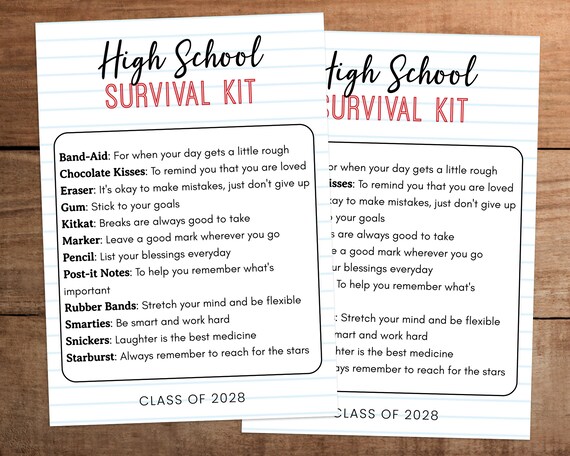 High School
SURVIVAL KIT
Band-Aid: For when your day gets a little rough
Chocolate Kisses: To remind you that you are loved
Eraser: It's okay to make mistakes, just don't give up
Gum: Stick to your goals
Kitkat: Breaks are always good to take
Marker: Leave a good mark wherever you go
Pencil: List your blessings everyday
Post-it Notes: To help you remember what's
important
Rubber Bands: Stretch your mind and be flexible
Smarties: Be smart and work hard
Snickers: Laughter is the best medicine
Starburst: Always remember to reach for the stars
CLASS OF 2028
High School
SURVIVAL KIT
or when your day gets a little rough
isses: To remind you that you are loved
kay to make mistakes, just don't give up
to your goals
s are always good to take
e a good mark wherever you go
our blessings everyday
: To help you remember what's
: Stretch your mind and be flexible
mart and work hard
ghter is the best medicine
ays remember to reach for the stars
CLASS OF 2028